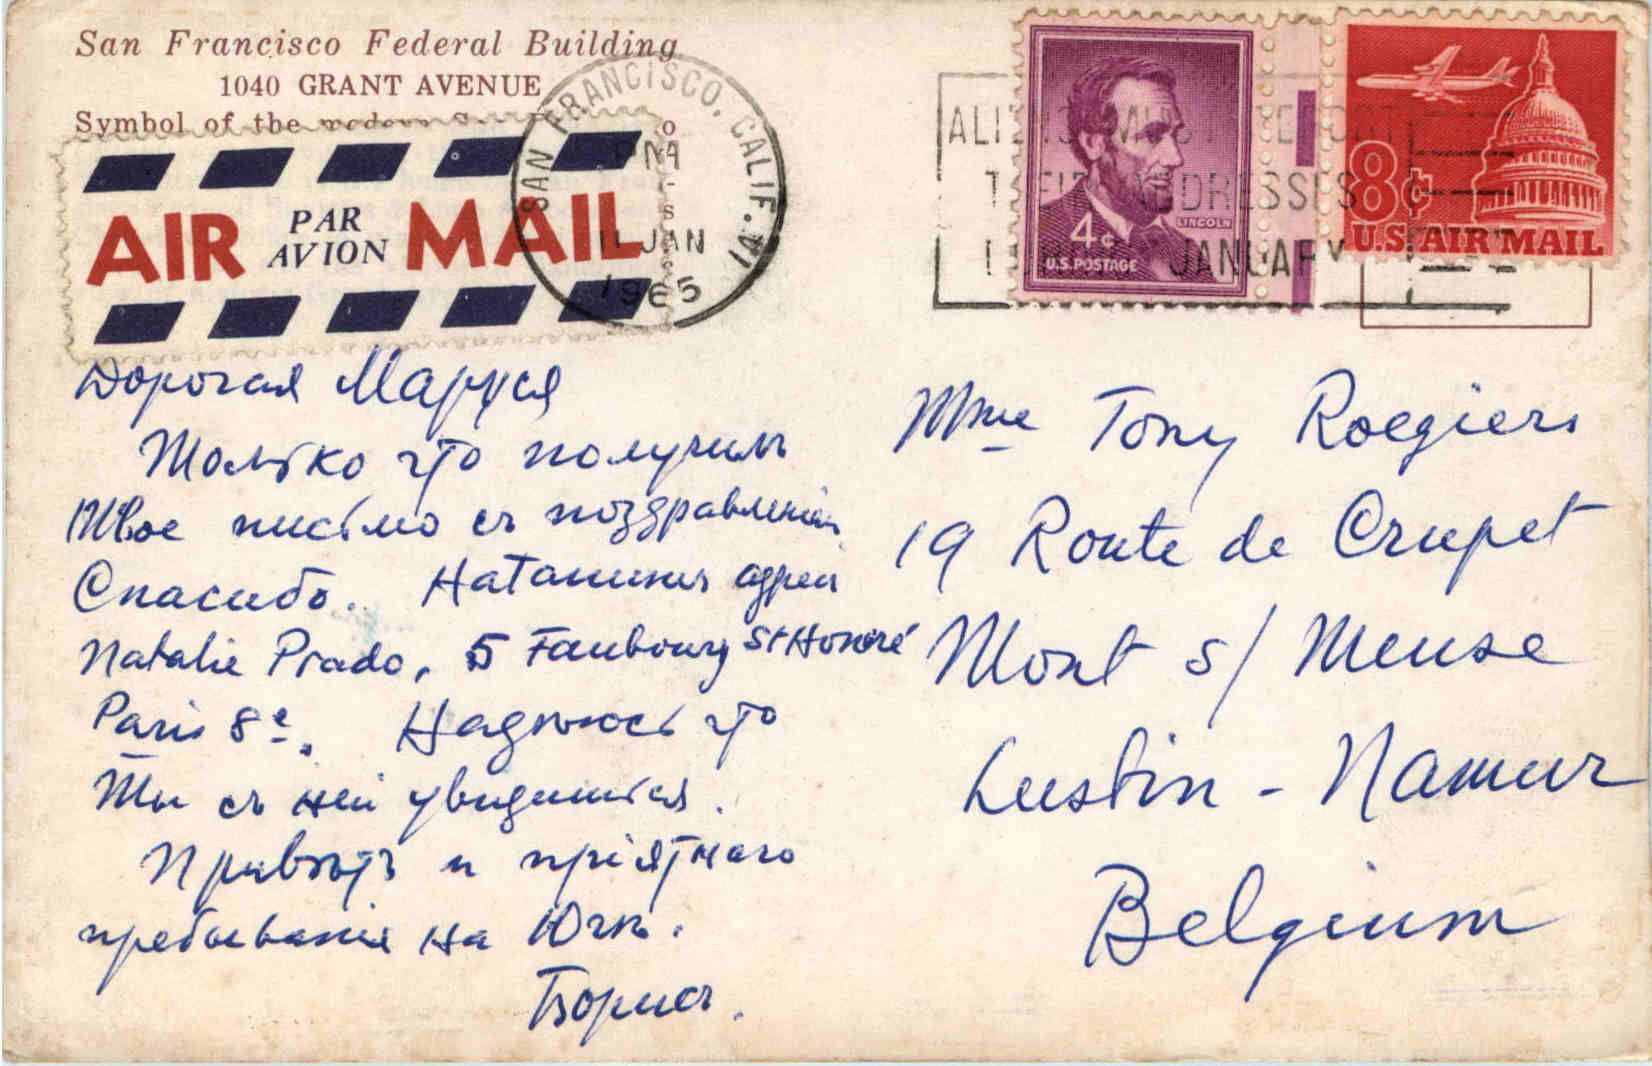 San Francisco Federal Building
1040 GRANT AVENUE
Symbol of the modern
AIR PAR AVION MAIL
SAN FRANCISCO, CALIF.
PM
11 JAN
1965
ALIENS MUST REPORT
THEIR ADDRESSES
JANUARY
4¢
LINCOLN
U.S. POSTAGE
8¢
U.S. AIR MAIL
Дорогая Маруся
Только что получилъ
Твое письмо съ поздравленіем
Спасибо. Наташинъ адрес
Natalie Prado, 5 Faubourg St Honoré
Paris 8e. Надѣюсь что
Ты съ ней увидишься.
Привѣтъ и пріятнаго
пребыванія на Югѣ.
Борисъ.
Mme Tony Roegiers
19 Route de Crupet
Mont s/ Meuse
Lustin - Namur
Belgium